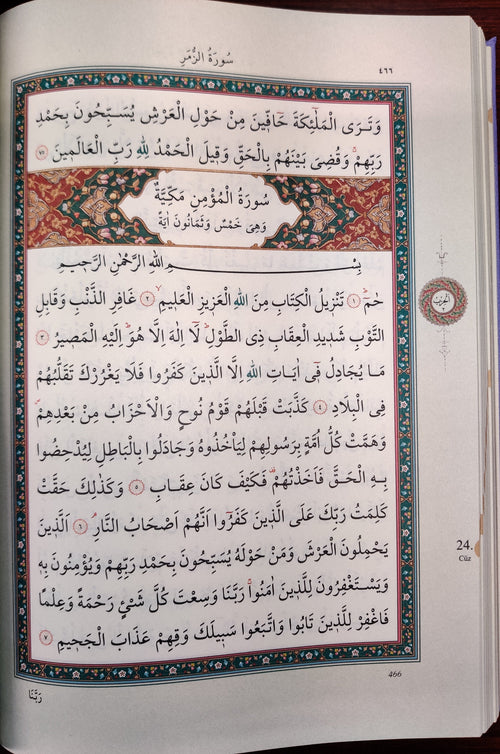 سُورَةُ الزُّمَرِ
٤٦٦
وَتَرَى الْمَلٰٓئِكَةَ حَٓافّ۪ينَ مِنْ حَوْلِ الْعَرْشِ يُسَبِّحُونَ بِحَمْدِ
رَبِّهِمْۚ وَقُضِيَ بَيْنَهُمْ بِالْحَقِّ وَق۪يلَ الْحَمْدُ لِلّٰهِ رَبِّ الْعَالَم۪ينَ ﴿٧٥﴾
سُورَةُ الْمُؤْمِنِ مَكِّيَّةٌ
وَهِيَ خَمْسٌ وَثَمَانُونَ اٰيَةً
بِسْمِ اللّٰهِ الرَّحْمٰنِ الرَّح۪يمِ
حٰمٓۜ ﴿١﴾ تَنْز۪يلُ الْكِتَابِ مِنَ اللّٰهِ الْعَز۪يزِ الْعَل۪يمِۙ ﴿٢﴾ غَافِرِ الذَّنْبِ وَقَابِلِ
التَّوْبِ شَد۪يدِ الْعِقَابِ ذِي الطَّوْلِۜ لَٓا اِلٰهَ اِلَّا هُوَۜ اِلَيْهِ الْمَص۪يرُ ﴿٣﴾
مَا يُجَادِلُ ف۪ٓي اٰيَاتِ اللّٰهِ اِلَّا الَّذ۪ينَ كَفَرُوا فَلَا يَغْرُرْكَ تَقَلُّبُهُمْ
فِي الْبِلَادِ ﴿٤﴾ كَذَّبَتْ قَبْلَهُمْ قَوْمُ نُوحٍ وَالْاَحْزَابُ مِنْ بَعْدِهِمْۖ
وَهَمَّتْ كُلُّ اُمَّةٍ بِرَسُولِهِمْ لِيَأْخُذُوهُ وَجَادَلُوا بِالْبَاطِلِ لِيُدْحِضُوا
بِهِ الْحَقَّ فَاَخَذْتُهُمْ۠ فَكَيْفَ كَانَ عِقَابِ ﴿٥﴾ وَكَذٰلِكَ حَقَّتْ
كَلِمَتُ رَبِّكَ عَلَى الَّذ۪ينَ كَفَرُٓوا اَنَّهُمْ اَصْحَابُ النَّارِۢ ﴿٦﴾ اَلَّذ۪ينَ
يَحْمِلُونَ الْعَرْشَ وَمَنْ حَوْلَهُ يُسَبِّحُونَ بِحَمْدِ رَبِّهِمْ وَيُؤْمِنُونَ بِه۪
وَيَسْتَغْفِرُونَ لِلَّذ۪ينَ اٰمَنُواۚ رَبَّنَا وَسِعْتَ كُلَّ شَيْءٍ رَحْمَةً وَعِلْمًا
فَاغْفِرْ لِلَّذ۪ينَ تَابُوا وَاتَّبَعُوا سَب۪يلَكَ وَقِهِمْ عَذَابَ الْجَح۪يمِ ﴿٧﴾
اَلْحِزْبُ
24.
Cüz
466
رَبَّنَا